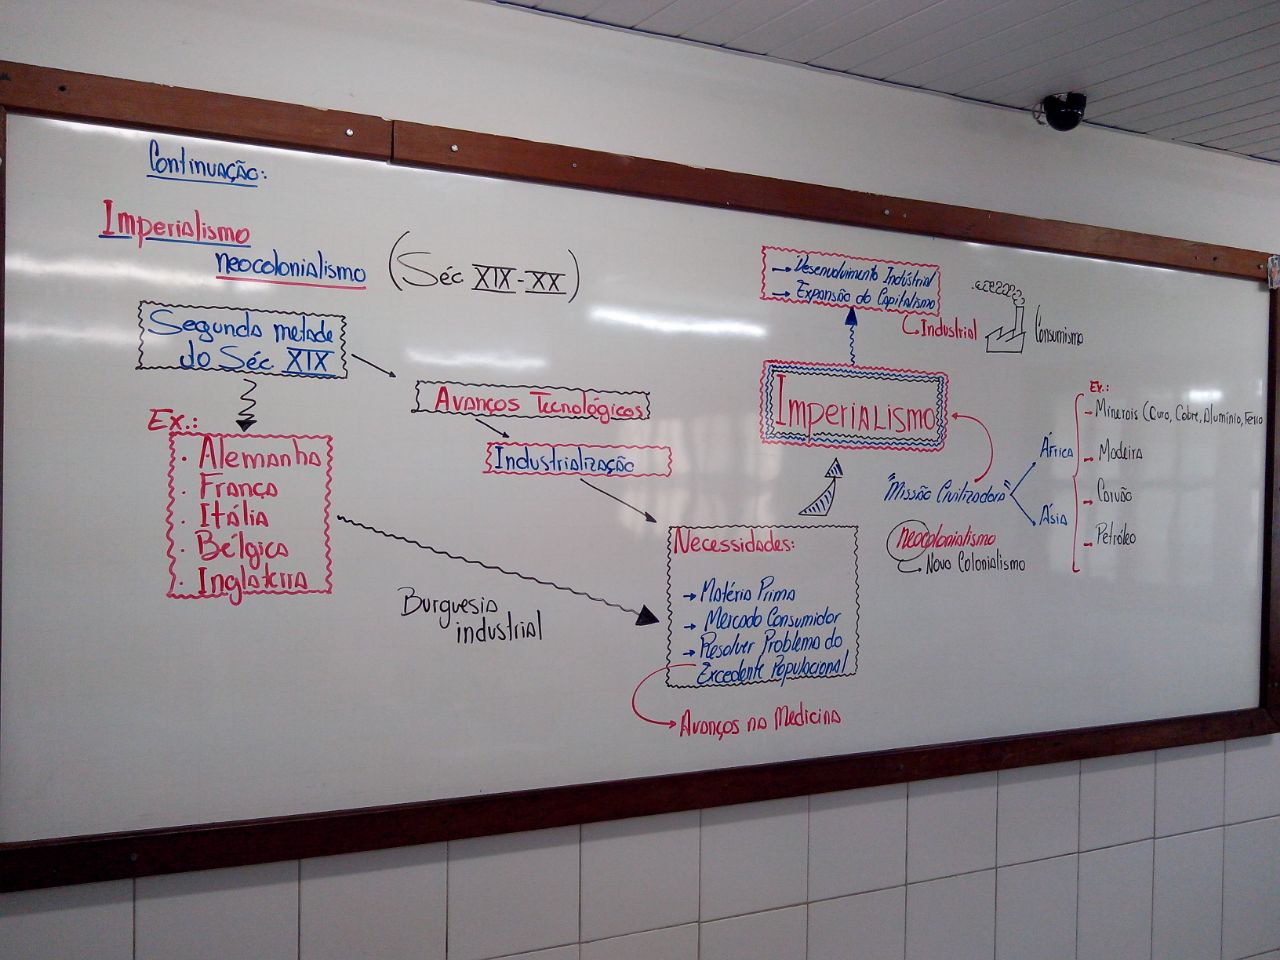 Continuação:
Imperialismo
neocolonialismo (Séc XIX-XX)
Segunda metade
do Séc XIX
Ex.:
· Alemanha
· França
· Itália
· Bélgica
· Inglaterra
Avanços Tecnológicos
Industrialização
Burguesia
industrial
Necessidades:
→ Matéria Prima
→ Mercado Consumidor
→ Resolver Problema do
Excedente Populacional
Avanços na Medicina
→ Desenvolvimento Indústrial
→ Expansão do Capitalismo
Industrial
Consumismo
Imperialismo
"Missão Civilizadora"
neocolonialismo
Novo Colonialismo
África
Ásia
Ex.:
- Minerais (Ouro, Cobre, Alumínio, Ferro
- Madeira
- Carvão
- Petróleo